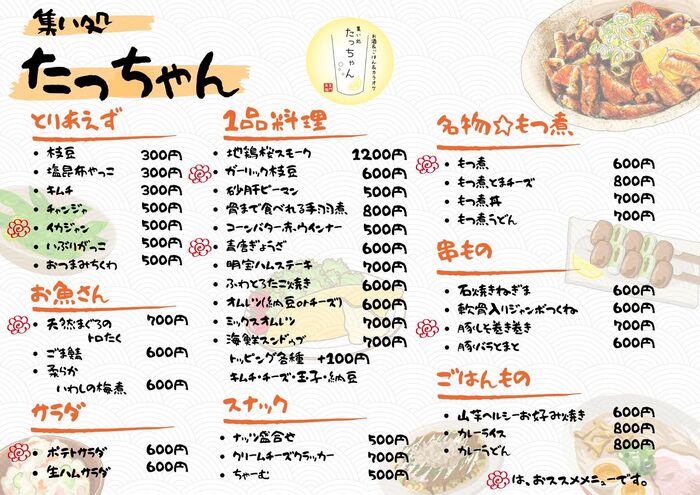 集い処
たっちゃん
お酒&ごはん&カラオケ
集い処
たっちゃん
とりあえず
・枝豆 300円
・塩昆布やっこ 300円
・キムチ 300円
・チャンジャ 500円
・イカジャン 500円
・いぶりがっこ 500円
・おつまみちくわ 500円
お魚さん
・天然まぐろの
トロたく 700円
・ごま鯖 600円
・柔らか
いわしの梅煮 600円
サラダ
・ポテトサラダ 600円
・生ハムサラダ 600円
1品料理
・地鶏桜スモーク 1200円
・ガーリック枝豆 600円
・砂肝ピーマン 500円
・骨まで食べれる手羽煮 800円
・コーンバター赤ウインナー 500円
・青唐ぎょうざ 600円
・明宝ハムステーキ 700円
・ふわとろたこ焼き 600円
・オムレツ(納豆orチーズ) 600円
・ミックスオムレツ 700円
・海鮮スンドゥブ 700円
トッピング各種 +100円
キムチ・チーズ・玉子・納豆
スナック
・ナッツ盛合せ 500円
・クリームチーズクラッカー 700円
・ちゃーむ 500円
名物☆もつ煮
・もつ煮 600円
・もつ煮とまチーズ 800円
・もつ煮丼 700円
・もつ煮うどん 700円
串もの
・石焼きねぎま 600円
・軟骨入りジャンボつくね 700円
・豚・しそ巻き巻き 700円
・豚・バラとまと 600円
ごはんもの
・山芋ヘルシーお好み焼き 600円
・カレーライス 800円
・カレーうどん 800円
は、おススメメニューです。